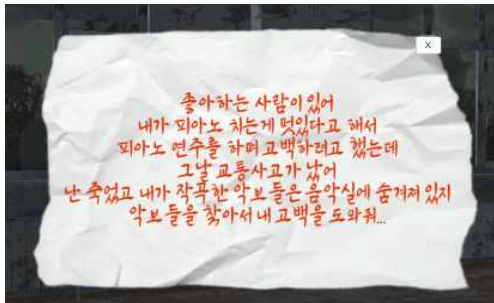 X
좋아하는 사람이 있어
내가 피아노 치는게 멋있다고 해서
피아노 연주를 하며 고백하려고 했는데
그날 교통사고가 났어
난 죽었고 내가 작곡한 악보들은 음악실에 숨겨져 있지
악보들을 찾아서 내 고백을 도와줘...